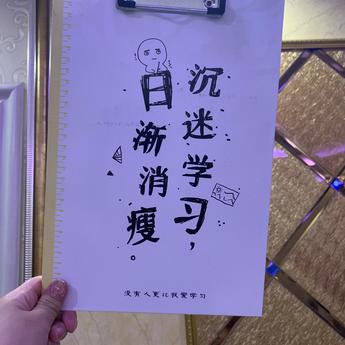 沉迷学习，
日渐消瘦。
没有人更比我爱学习